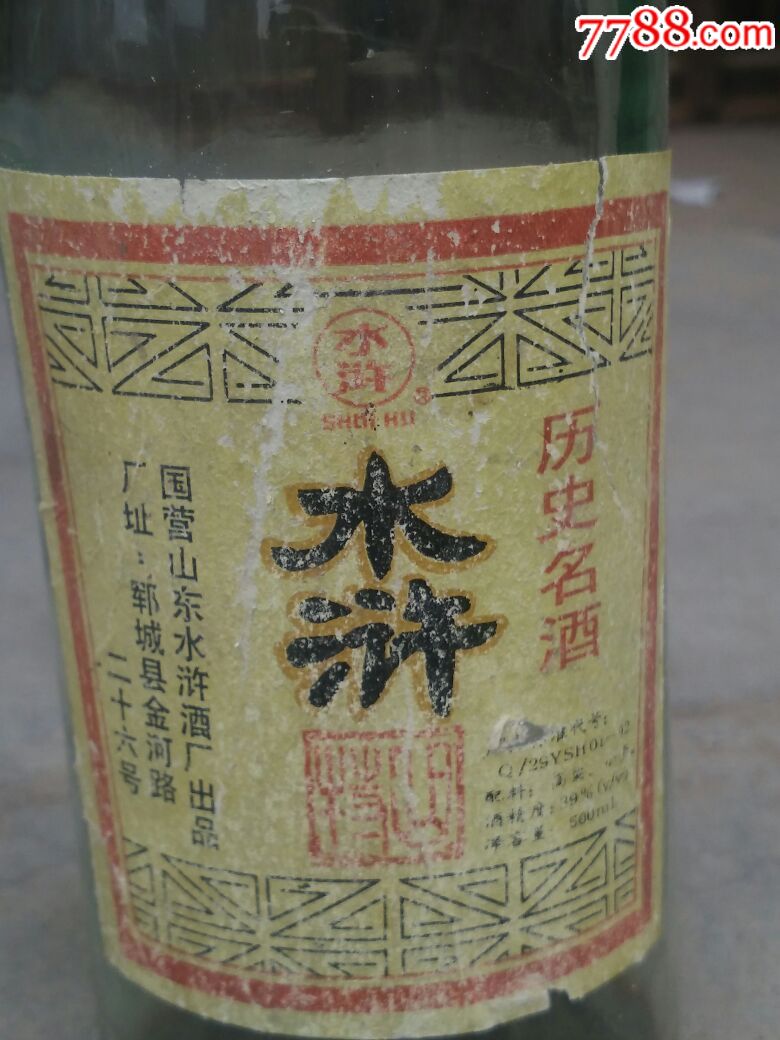 7788.com
水
浒
SHUI HU
水浒
历史名酒
国营山东水浒酒厂出品
厂址：郓城县金河路
二十六号
代号：
Q/29YSH01-
配料：高粱、
酒精度：39%(v/v)
净容量：500ml